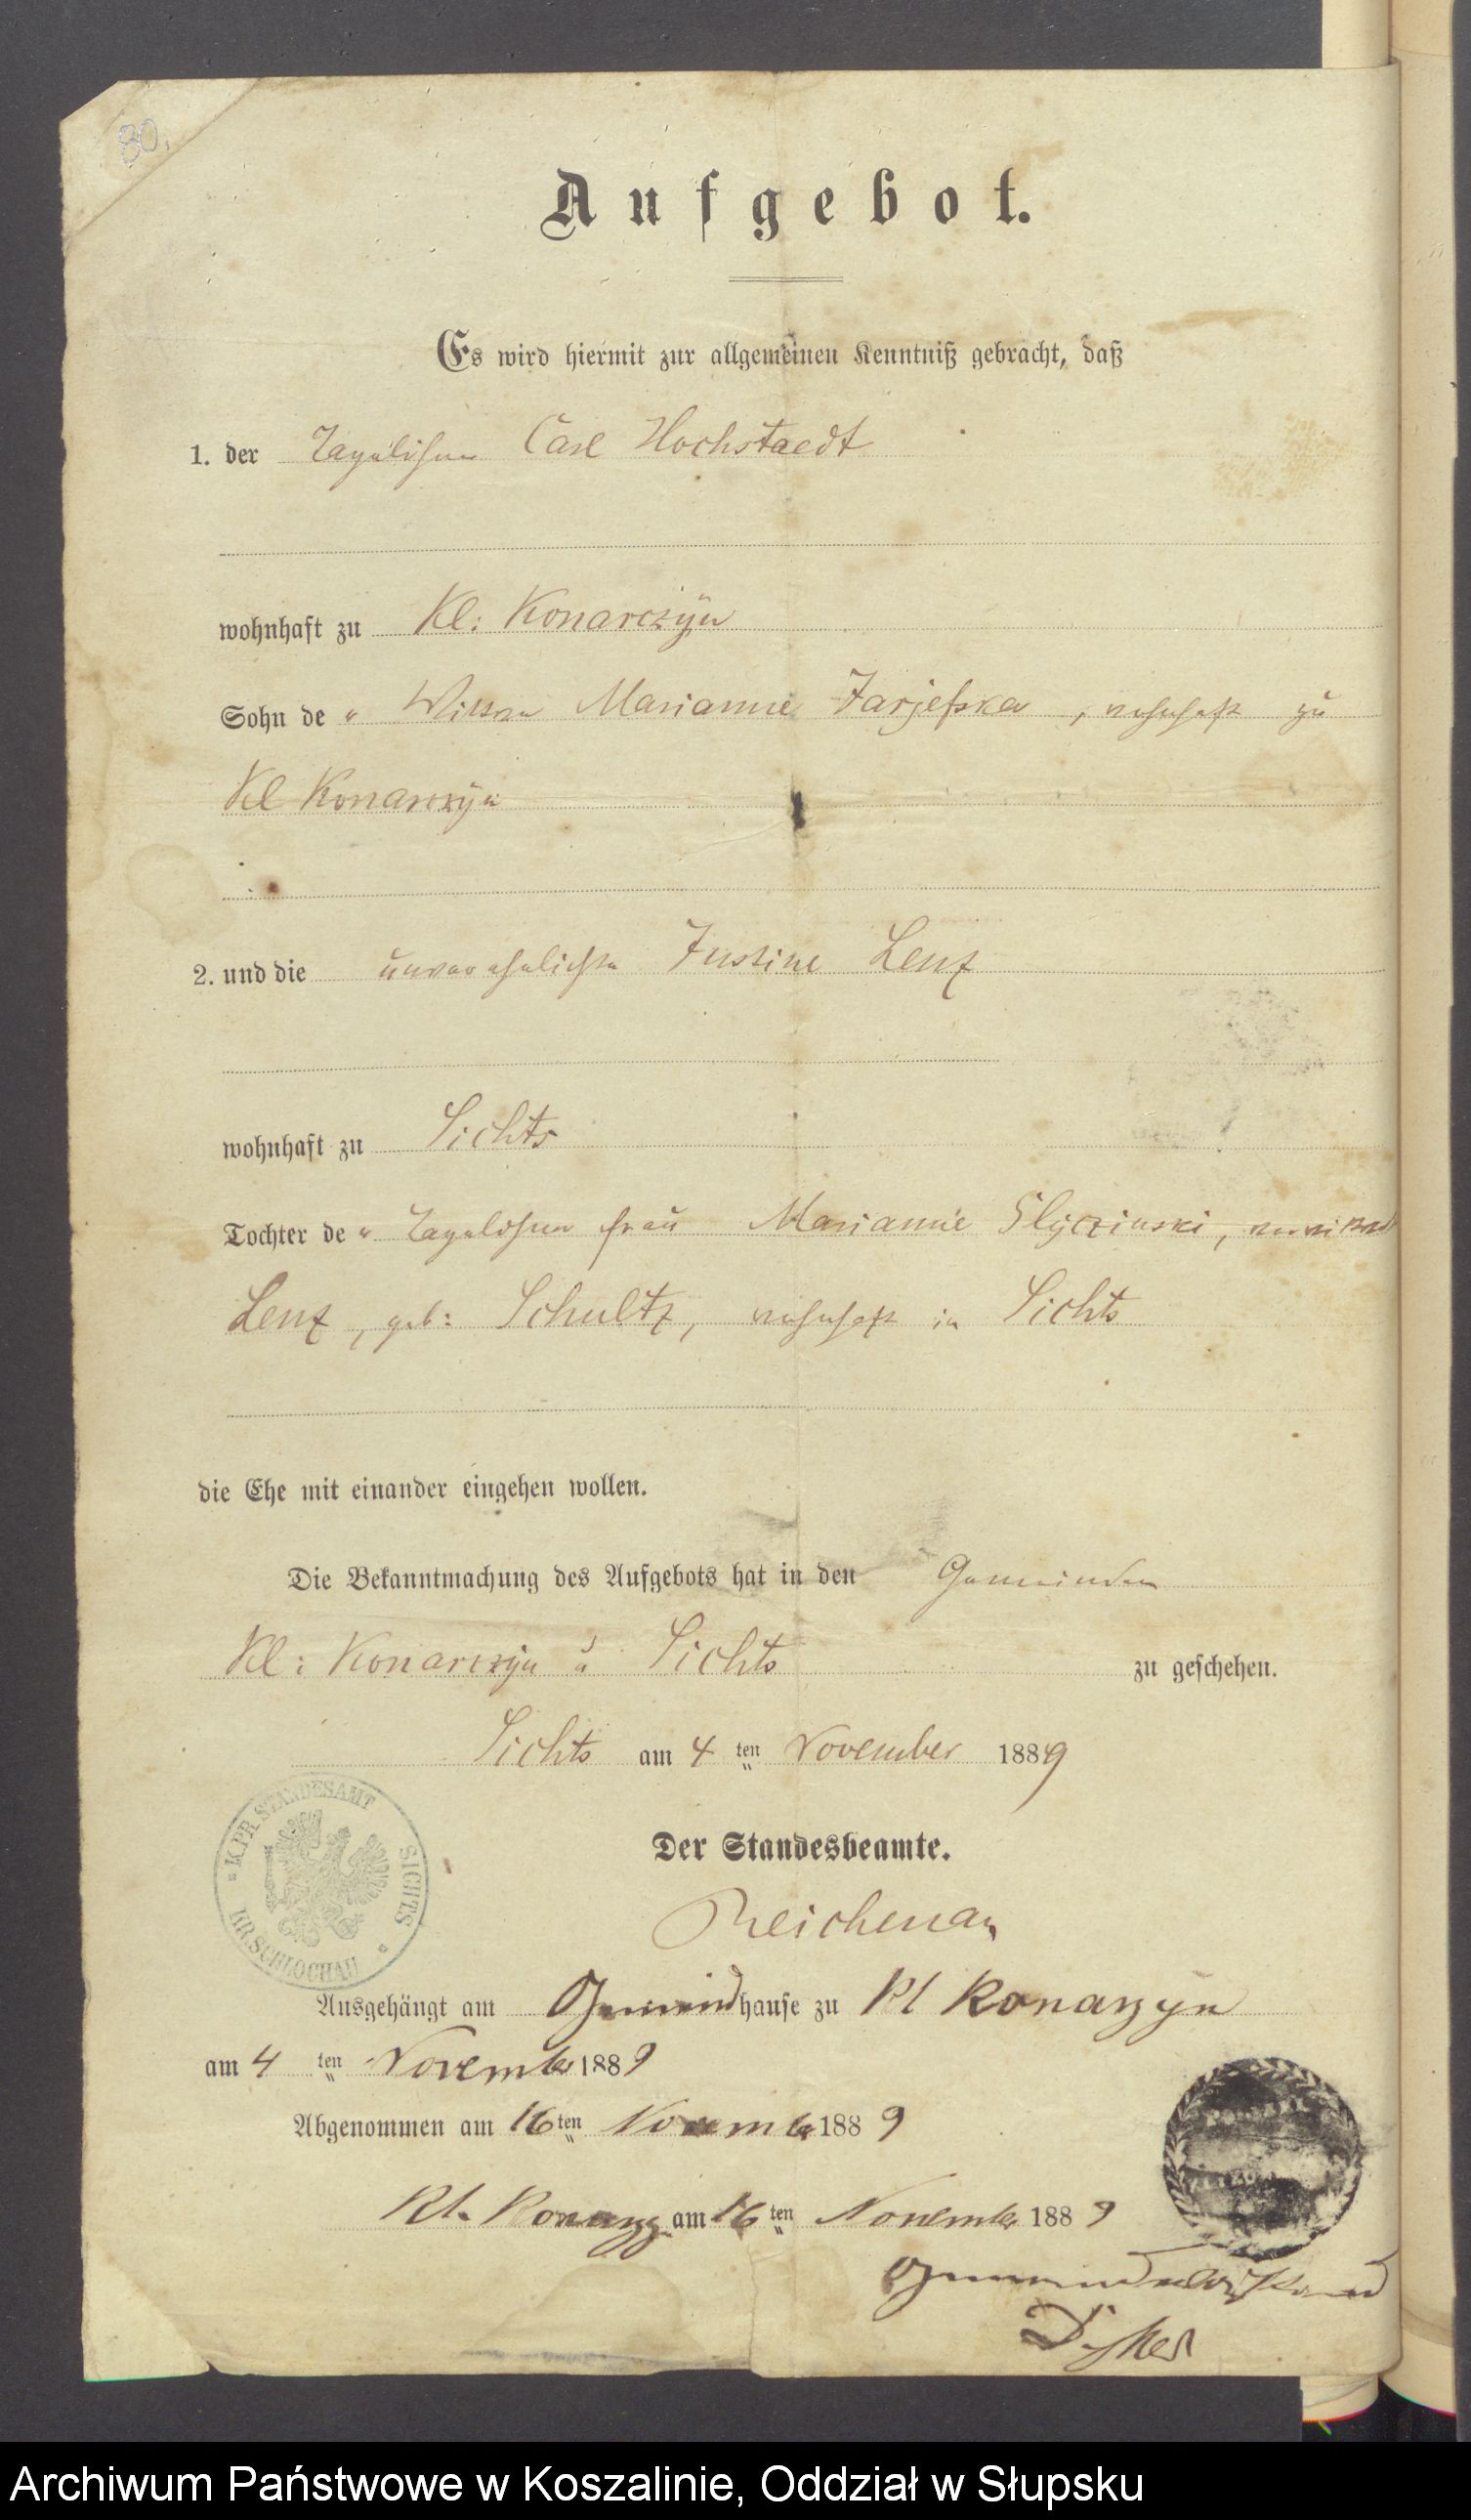 80.
Aufgebot.
Es wird hiermit zur allgemeinen Kenntniß gebracht, daß
1. der Tagelöhner Carl Hochstaedt
wohnhaft zu Kl: Konarczyn
Sohn der Wittwe Marianne, wohnhaft zu
Kl Konarczyn
2. und die unverehelichte Justine Lenz
wohnhaft zu Sichts
Tochter der Tagelöhner frau Marianne Slyczinski, verwittwet
Lenz, geb: Schultz, wohnhaft in Sichts
die Ehe mit einander eingehen wollen.
Die Bekanntmachung des Aufgebots hat in den Gemeinden
Kl: Konarczyn u Sichts zu geschehen.
Sichts am 4 ten November 1889
K.PR. STANDESAMT SICHTS KR. SCHLOCHAU
Der Standesbeamte.
Reichenau
Ausgehängt am Gemeindhause zu Kl Konarzyn
am 4 ten November 1889
Abgenommen am 16 ten November 1889
Kl. Konarzy am 16 ten November 1889
Gemeindevorstand
Archiwum Państwowe w Koszalinie, Oddział w Słupsku